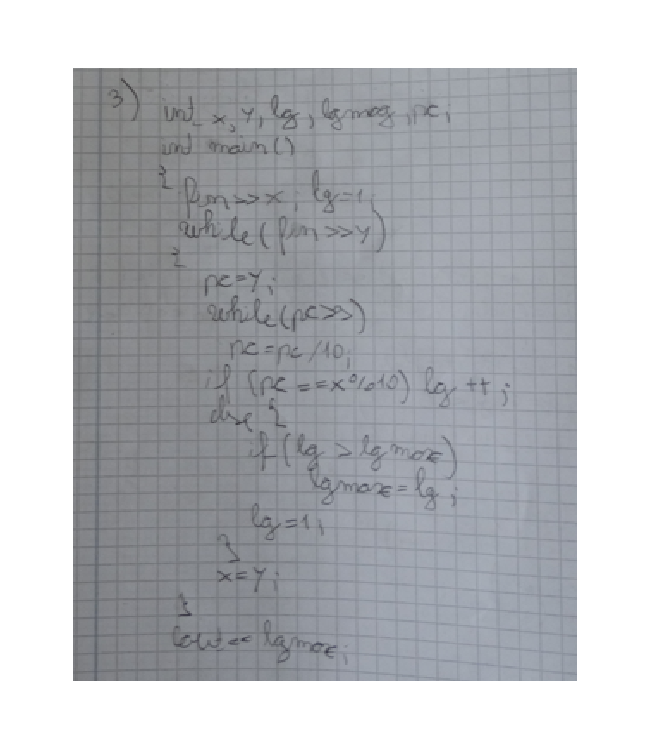 3) int x, y, lg, lgmax, pc;
int main()
{
fin>>x; lg=1;
while(fin>>y)
{
pc=y;
while(pc>9)
pc=pc/10;
if (pc==x%10) lg++;
else {
if(lg>lgmax)
lgmax=lg;
lg=1;
}
x=y;
}
cout<<lgmax;